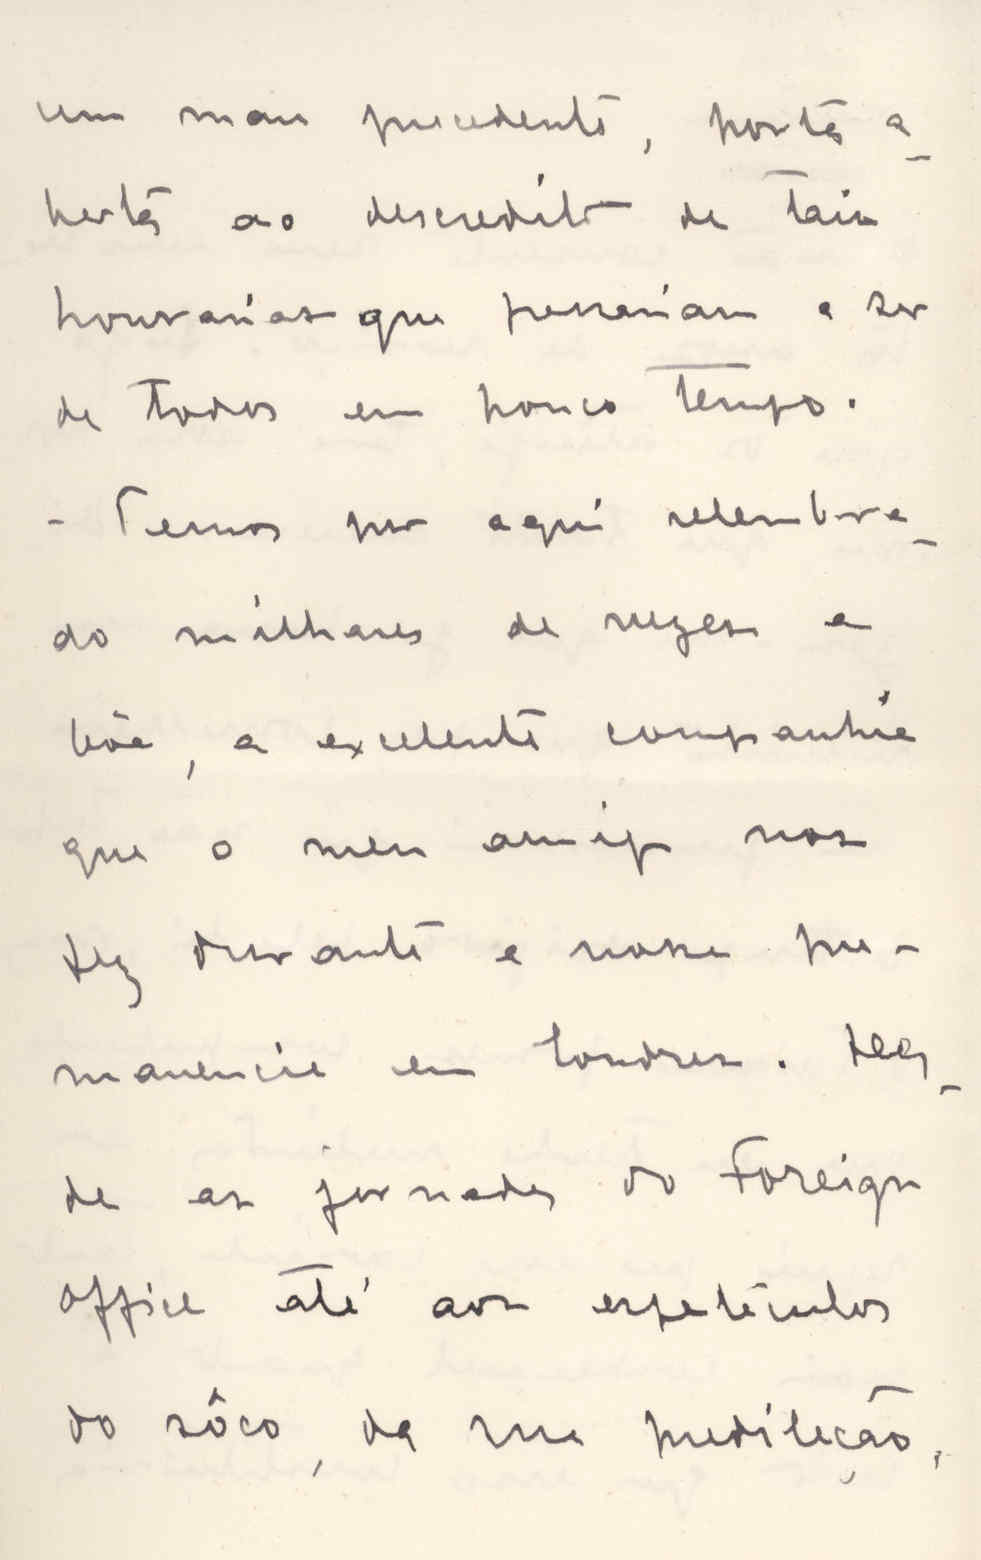 um mau precedente, porta a-
berta ao descredito de tais
honrarias que passariam a ser
de todos em pouco tempo.
- Temos por aqui relembra-
do milhares de vezes a
bôa, a excelente companhia
que o meu amigo nos
fez durante a nossa per-
manencia em Londres. Des-
de as jornadas do Foreign
Office até aos espetáculos
do sôco, da sua predileção,